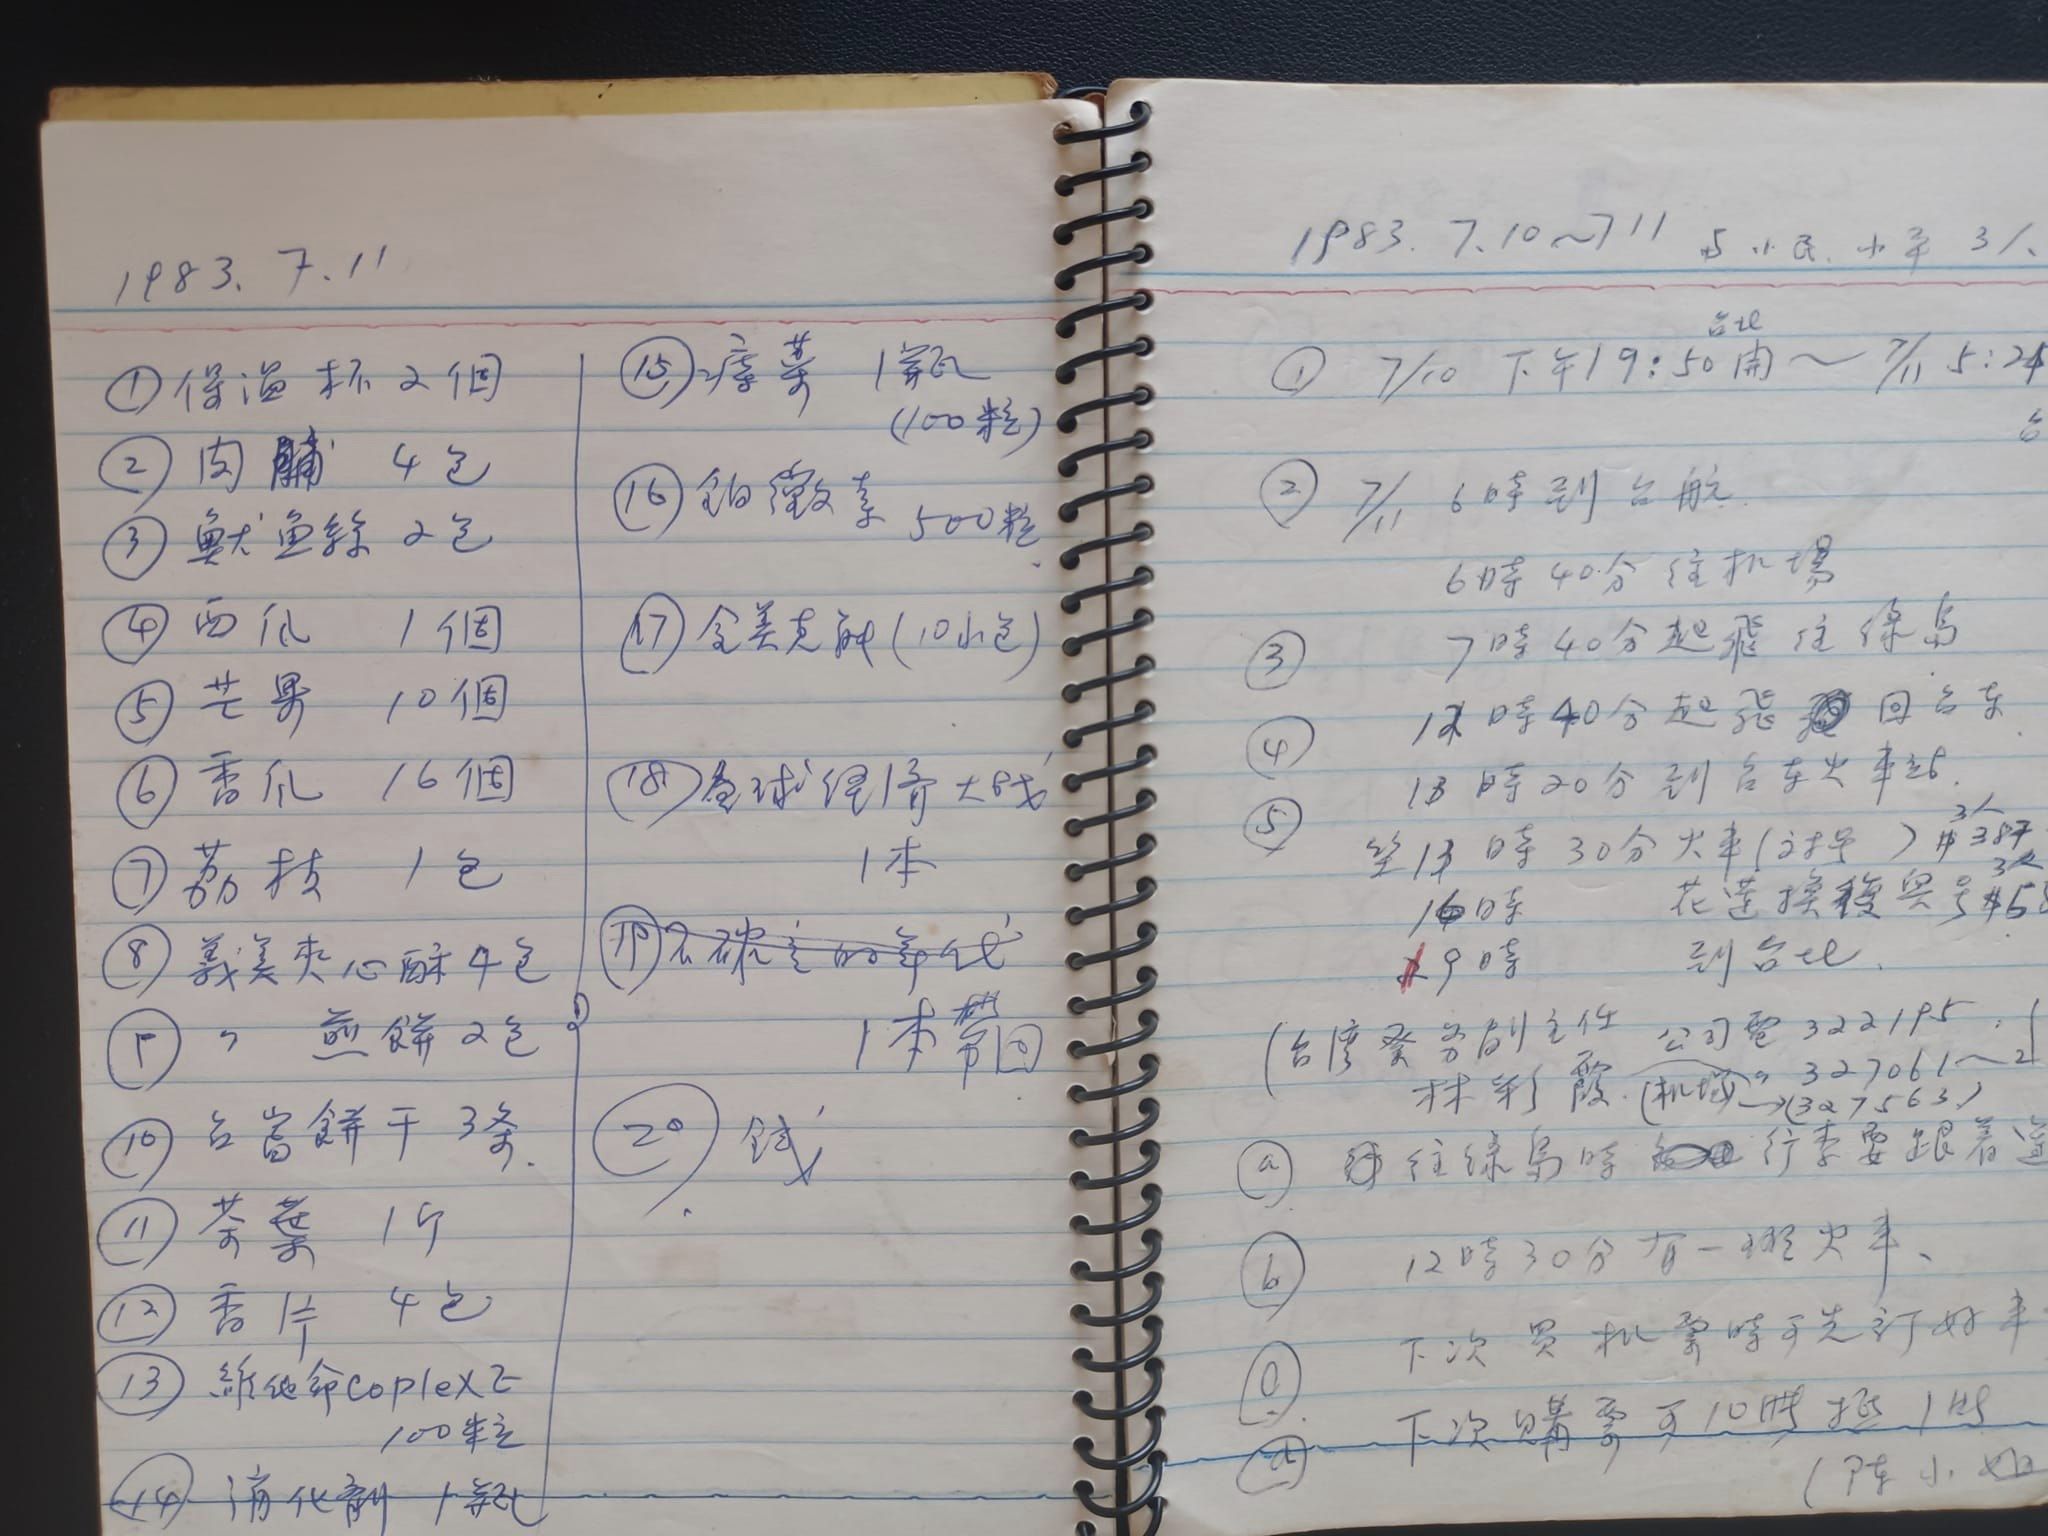 1983. 7. 11
① 保溫杯 2個
② 肉脯 4包
③ 魷魚絲 2包
④ 西瓜 1個
⑤ 芒果 10個
⑥ 香瓜 16個
⑦ 荔枝 1包
⑧ 義美夾心酥 4包
⑨ 〃 煎餅 2包
⑩ 台當餅干 3条.
⑪ 茶葉 1斤
⑫ 香片 4包
⑬ 維他命coplex E
100粒
⑭ 消化劑 1瓶
⑮ 1瓶
(100粒)
⑯ 500粒.
⑰ 全美克 (10小包)
⑱ 全球經濟大戰
1本
⑲ 石碳 的年代
1本帶回
⑳ 錢
1983. 7.10~711 与小民. 小平 3人.
台北
① 7/10 下午19:50開～7/11 5:24
台
② 7/11 6時到台航
6時40分往机場
③ 7時40分起飛往綠島
④ 12時40分起飛 回台东
13時20分到台东火車站.
3人
⑤ 坐13時30分火車(对号) $387
3人
16時 花莲换復興号 $5
19時 到台北.
(台灣 副主任 公司電322195.
林彩霞. (机場 〃 327061~2
→(327563)
ⓐ 往綠島時 行李要跟着
ⓑ 12時30分有一班火車、
ⓒ 下次買机票時可先訂好車
ⓓ 下次購票可10時 1時
(陈小姐